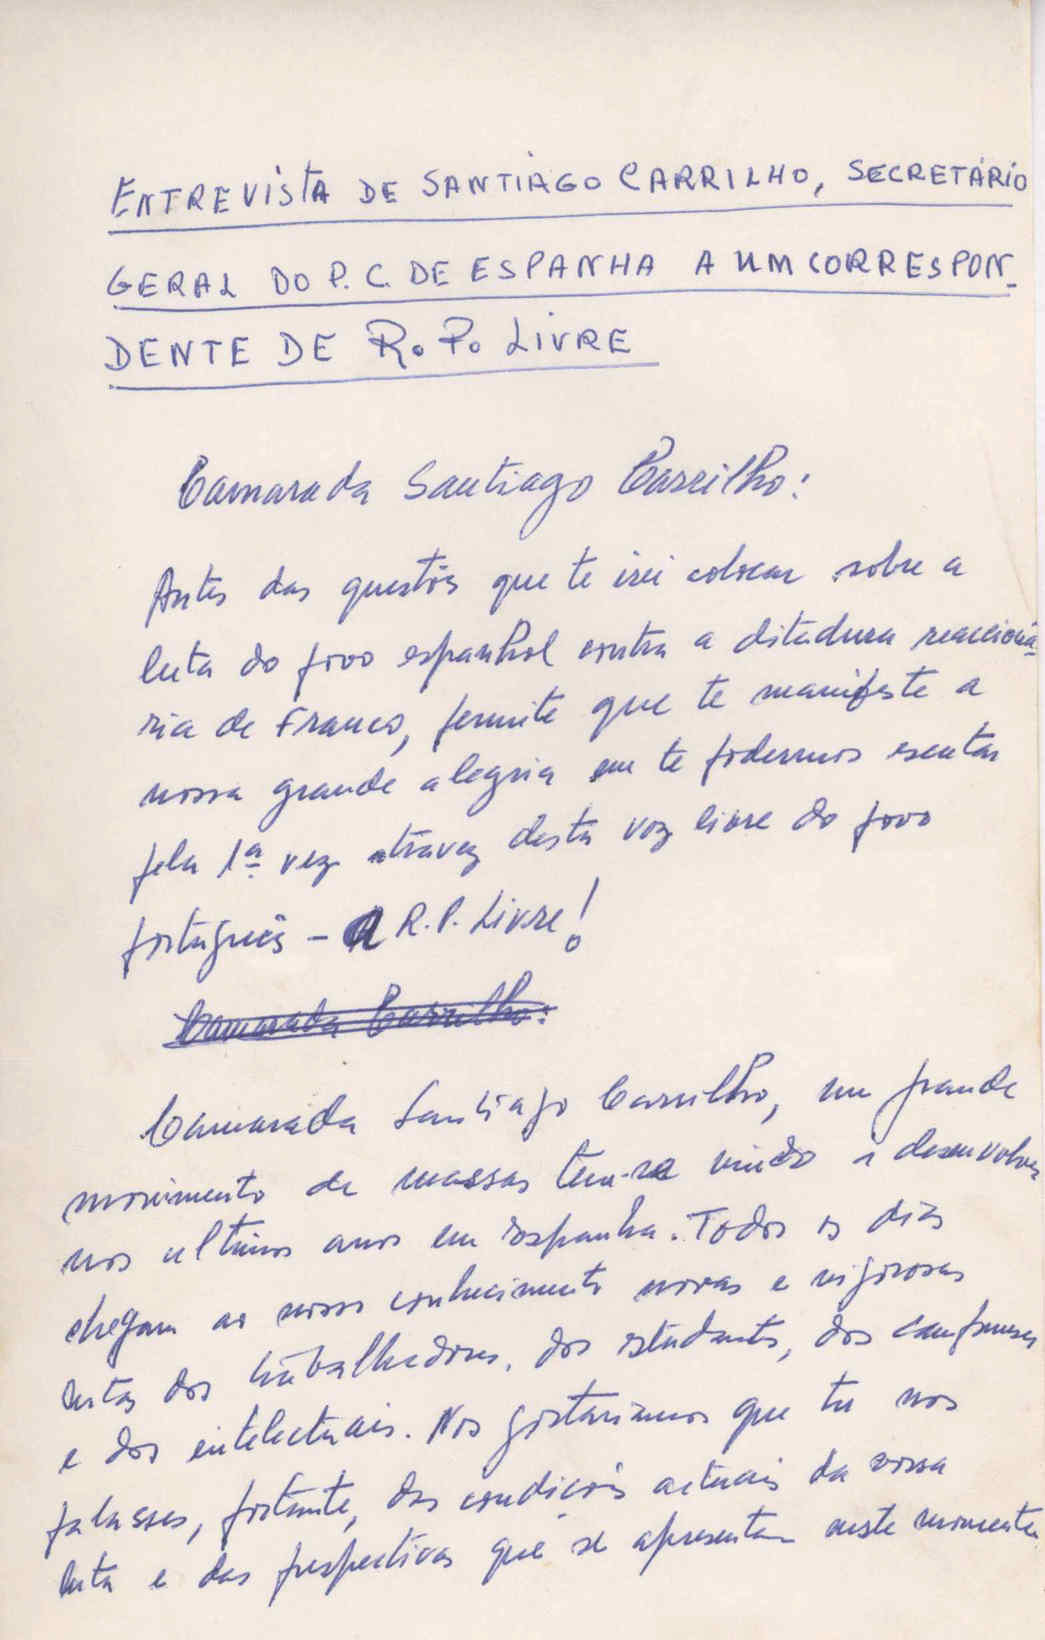 ENTREVISTA DE SANTIAGO CARRILHO, SECRETÁRIO
GERAL DO P. C. DE ESPANHA A UM CORRESPON-
DENTE DE R. P. LIVRE
Camarada Santiago Carrilho:
Antes das questões que te irei colocar sobre a
luta do povo espanhol contra a ditadura reaccioná-
ria de Franco, permite que te manifeste a
nossa grande alegria em te podermos escutar
pela 1ª vez atravez desta voz livre do povo
português - a R. P. Livre!
Camarada Carrilho:
Camarada Santiago Carrilho, um grande
movimento de massas tem-se vindo a desenvolver
nos ultimos anos em Espanha. Todos os dias
chegam ao nosso conhecimento novas e vigorosas
lutas dos trabalhadores, dos estudantes, dos camponeses
e dos intelectuais. Nos gostariamos que tu nos
falasses, portanto, das condições actuais da vossa
luta e das perspectivas que se apresentam neste momento